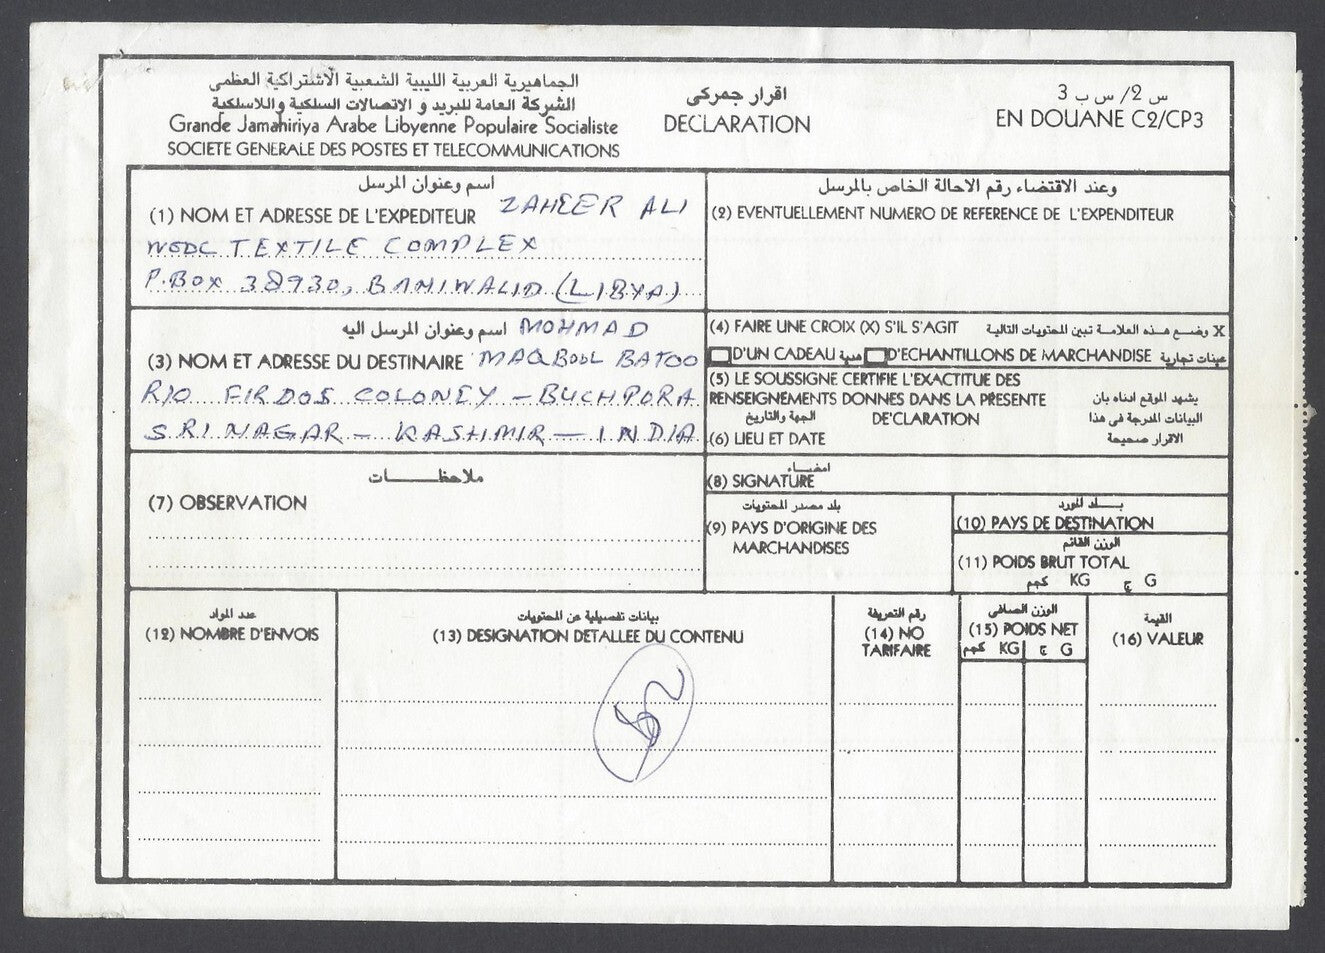 الجماهيرية العربية الليبية الشعبية الاشتراكية العظمى
الشركة العامة للبريد و الاتصالات السلكية واللاسلكية
Grande Jamahiriya Arabe Libyenne Populaire Socialiste
SOCIETE GENERALE DES POSTES ET TELECOMMUNICATIONS
اقرار جمركى
DECLARATION
س 2/ س ب 3
EN DOUANE C2/CP3
اسم وعنوان المرسل
(1) NOM ET ADRESSE DE L'EXPEDITEUR ZAHEER ALI
WEDC TEXTILE COMPLEX
P.BOX 38930, BANIWALID (LIBYA)
وعند الاقتضاء رقم الاحالة الخاص بالمرسل
(2) EVENTUELLEMENT NUMERO DE REFERENCE DE L'EXPENDITEUR
اسم وعنوان المرسل اليه MOHMAD
(3) NOM ET ADRESSE DU DESTINAIRE MAQBOOL BATOO
R/O FIRDOS COLONEY - BUCHPORA
SRINAGAR - KASHMIR - INDIA
(4) FAIRE UNE CROIX (X) S'IL S'AGIT X وضع هذه العلامة تبين المحتويات التالية
D'UN CADEAU هدية D'ECHANTILLONS DE MARCHANDISE عينات تجارية
(5) LE SOUSSIGNE CERTIFIE L'EXACTITUE DES
RENSEIGNEMENTS DONNES DANS LA PRESENTE
DECLARATION
يشهد الموقع ادناه بان
البيانات المدرجة فى هذا
الاقرار صحيحة
الجهة والتاريخ
(6) LIEU ET DATE
ملاحظات
(7) OBSERVATION
امضاء
(8) SIGNATURE
بلد مصدر المحتويات
(9) PAYS D'ORIGINE DES
MARCHANDISES
بلد المورد
(10) PAYS DE DESTINATION
الوزن القائم
(11) POIDS BRUT TOTAL
كجم KG ج G
عدد المواد
(12) NOMBRE D'ENVOIS
بيانات تفصيلية عن المحتويات
(13) DESIGNATION DETALLEE DU CONTENU
رقم التعريفة
(14) NO
TARIFAIRE
الوزن الصافى
(15) POIDS NET
كجم KG ج G
القيمة
(16) VALEUR